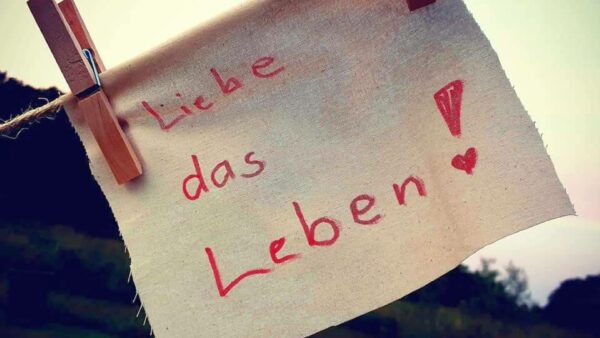 Liebe
das
Leben!